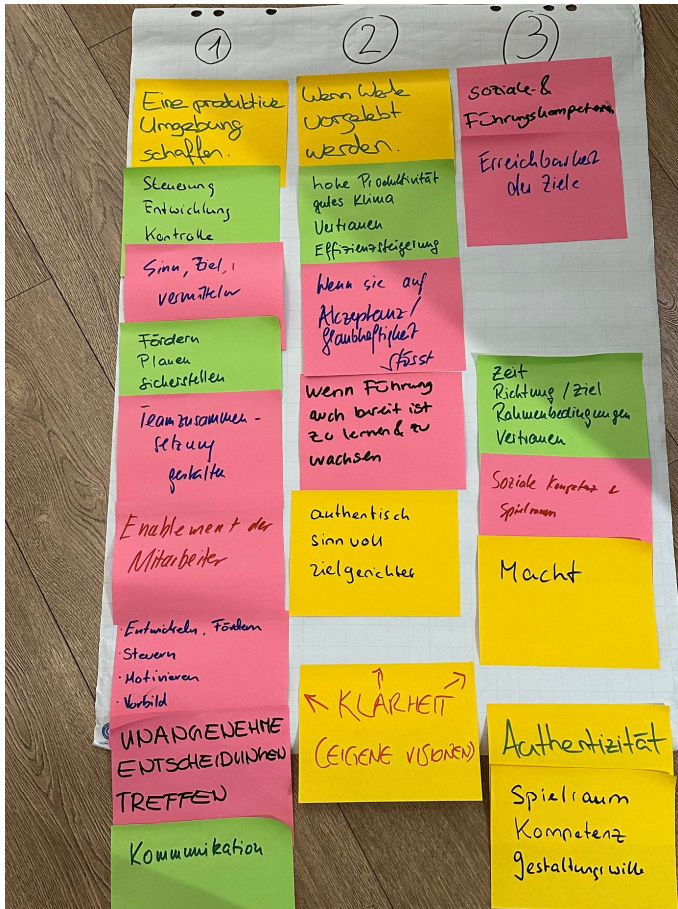 1
Eine produktive
Umgebung
schaffen.
Steuerung
Entwicklung
Kontrolle
Sinn, Ziel,
vermitteln
Fördern
Planen
sicherstellen
Teamzusammen-
setzung
gestalten
Enablement der
Mitarbeiter
· Entwickeln, Fördern
· Steuern
· Motivieren
· Vorbild
UNANGENEHME
ENTSCHEIDUNGEN
TREFFEN
Kommunikation
2
Wenn Werte
vorgelebt
werden.
hohe Produktivität
gutes Klima
Vertrauen
Effizienzsteigerung
Wenn sie auf
Akzeptanz/
Glaubhaftigkeit
stösst
Wenn Führung
auch bereit ist
zu lernen & zu
wachsen
authentisch
sinnvoll
zielgerichtet
KLARHEIT
(EIGENE VISIONEN)
3
soziale &
Führungskompetenz
Erreichbarkeit
der Ziele
Zeit
Richtung / Ziel
Rahmenbedingungen
Vertrauen
Soziale Kompetenz &
Spielraum
Macht
Authentizität
Spielraum
Kompetenz
Gestaltungswille